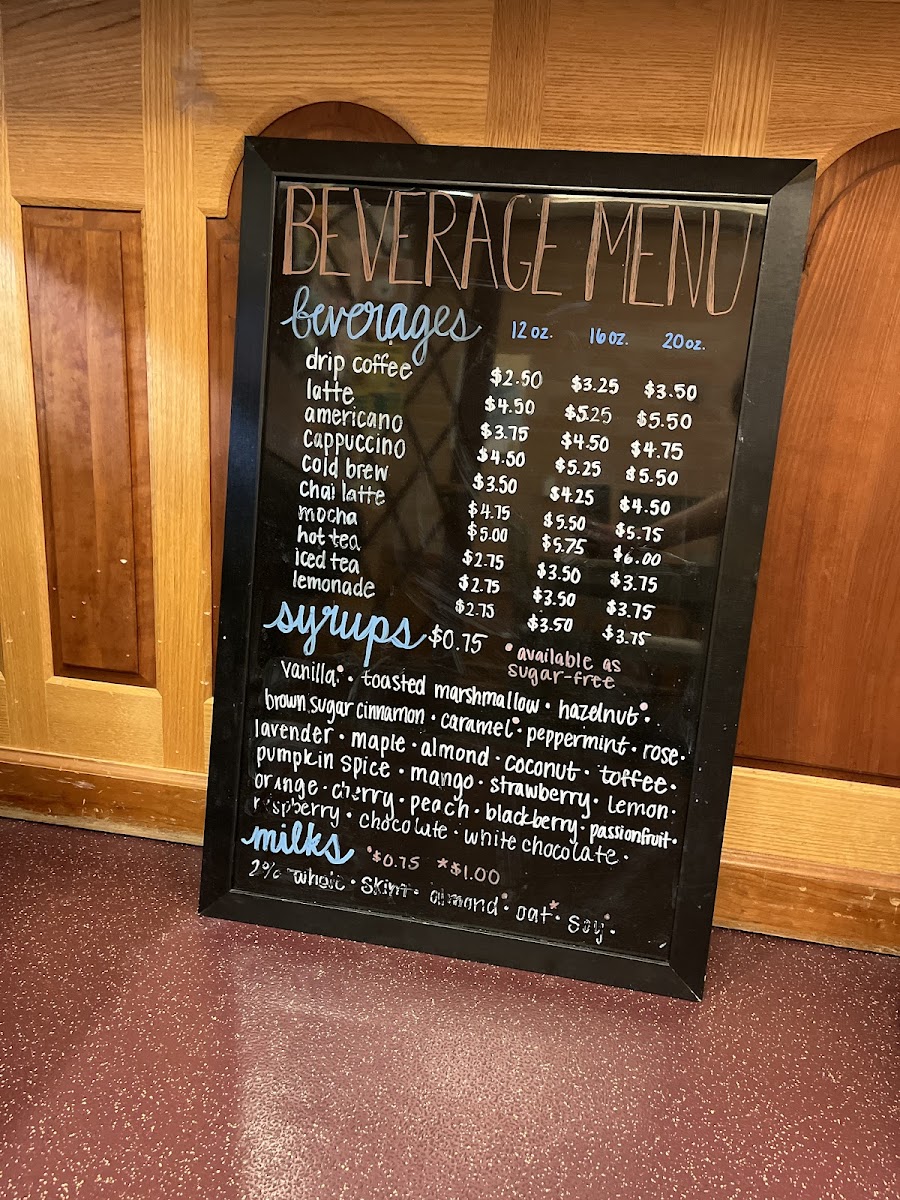 BEVERAGE MENU
beverages 12 oz. 16 oz. 20 oz.
drip coffee $2.50 $3.25 $3.50
latte $4.50 $5.25 $5.50
americano $3.75 $4.50 $4.75
cappuccino $4.50 $5.25 $5.50
cold brew $3.50 $4.25 $4.50
chai latte $4.75 $5.50 $5.75
mocha $5.00 $5.75 $6.00
hot tea $2.75 $3.50 $3.75
iced tea $2.75 $3.50 $3.75
lemonade $2.75 $3.50 $3.75
syrups $0.75 *available as
sugar-free
vanilla* · toasted marshmallow · hazelnut* ·
brown sugar cinnamon · caramel* · peppermint · rose ·
lavender · maple · almond · coconut · toffee ·
pumpkin spice · mango · strawberry · lemon ·
orange · cherry · peach · blackberry · passionfruit ·
raspberry · chocolate · white chocolate ·
milks •$0.75 *$1.00
2% whole · skim · almond• · oat* · soy•